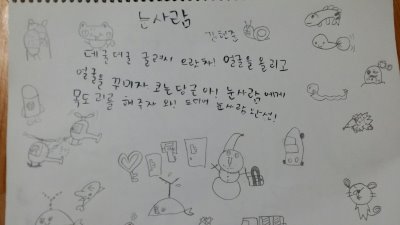 눈사람
김현준
데굴데굴 굴려서 으랏차! 얼굴을 올리고
얼굴을 꾸미자 코는 당근 이야! 눈사람에게
목도리를 해주자 와! 드디어 눈사람 완성!